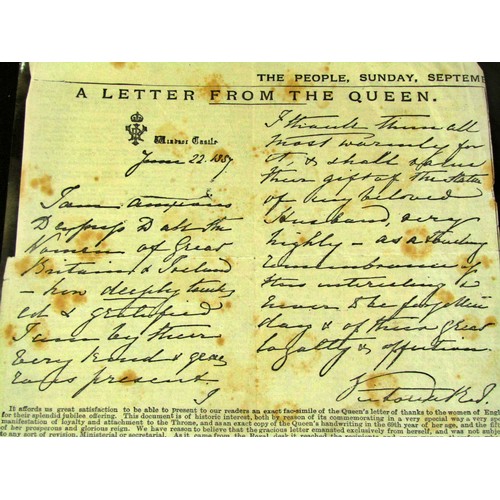 THE PEOPLE, SUNDAY, SEPTEM
A LETTER FROM THE QUEEN.
Windsor Castle
June 22. 1887
I am anxious
to express to all the
Women of Great
Britain & Ireland
– how deeply touch
ed & gratified
I am by their
very kind & gene
rous present.
I
I thank them all
most warmly for
it, & shall value
their gift of the statue
of my beloved
Husband, very
highly – as a
remembrance of
this interesting &
never to be forgotten
day & of their great
loyalty & affection
Victoria R.I.
It affords us great satisfaction to be able to present to our readers an exact fac-simile of the Queen's letter of thanks to the women of Eng
for their splendid jubilee offering. This document is of historic interest, both by reason of its commemorating in a very special way a very spe
manifestation of loyalty and attachment to the Throne, and as an exact copy of the Queen's handwriting in the 69th year of her age, and the fif
of her prosperous and glorious reign. We have reason to believe that the gracious letter emanated exclusively from herself, and was not subje
to any sort of revision, Ministerial or secretarial. As it came from the Royal desk it reached the